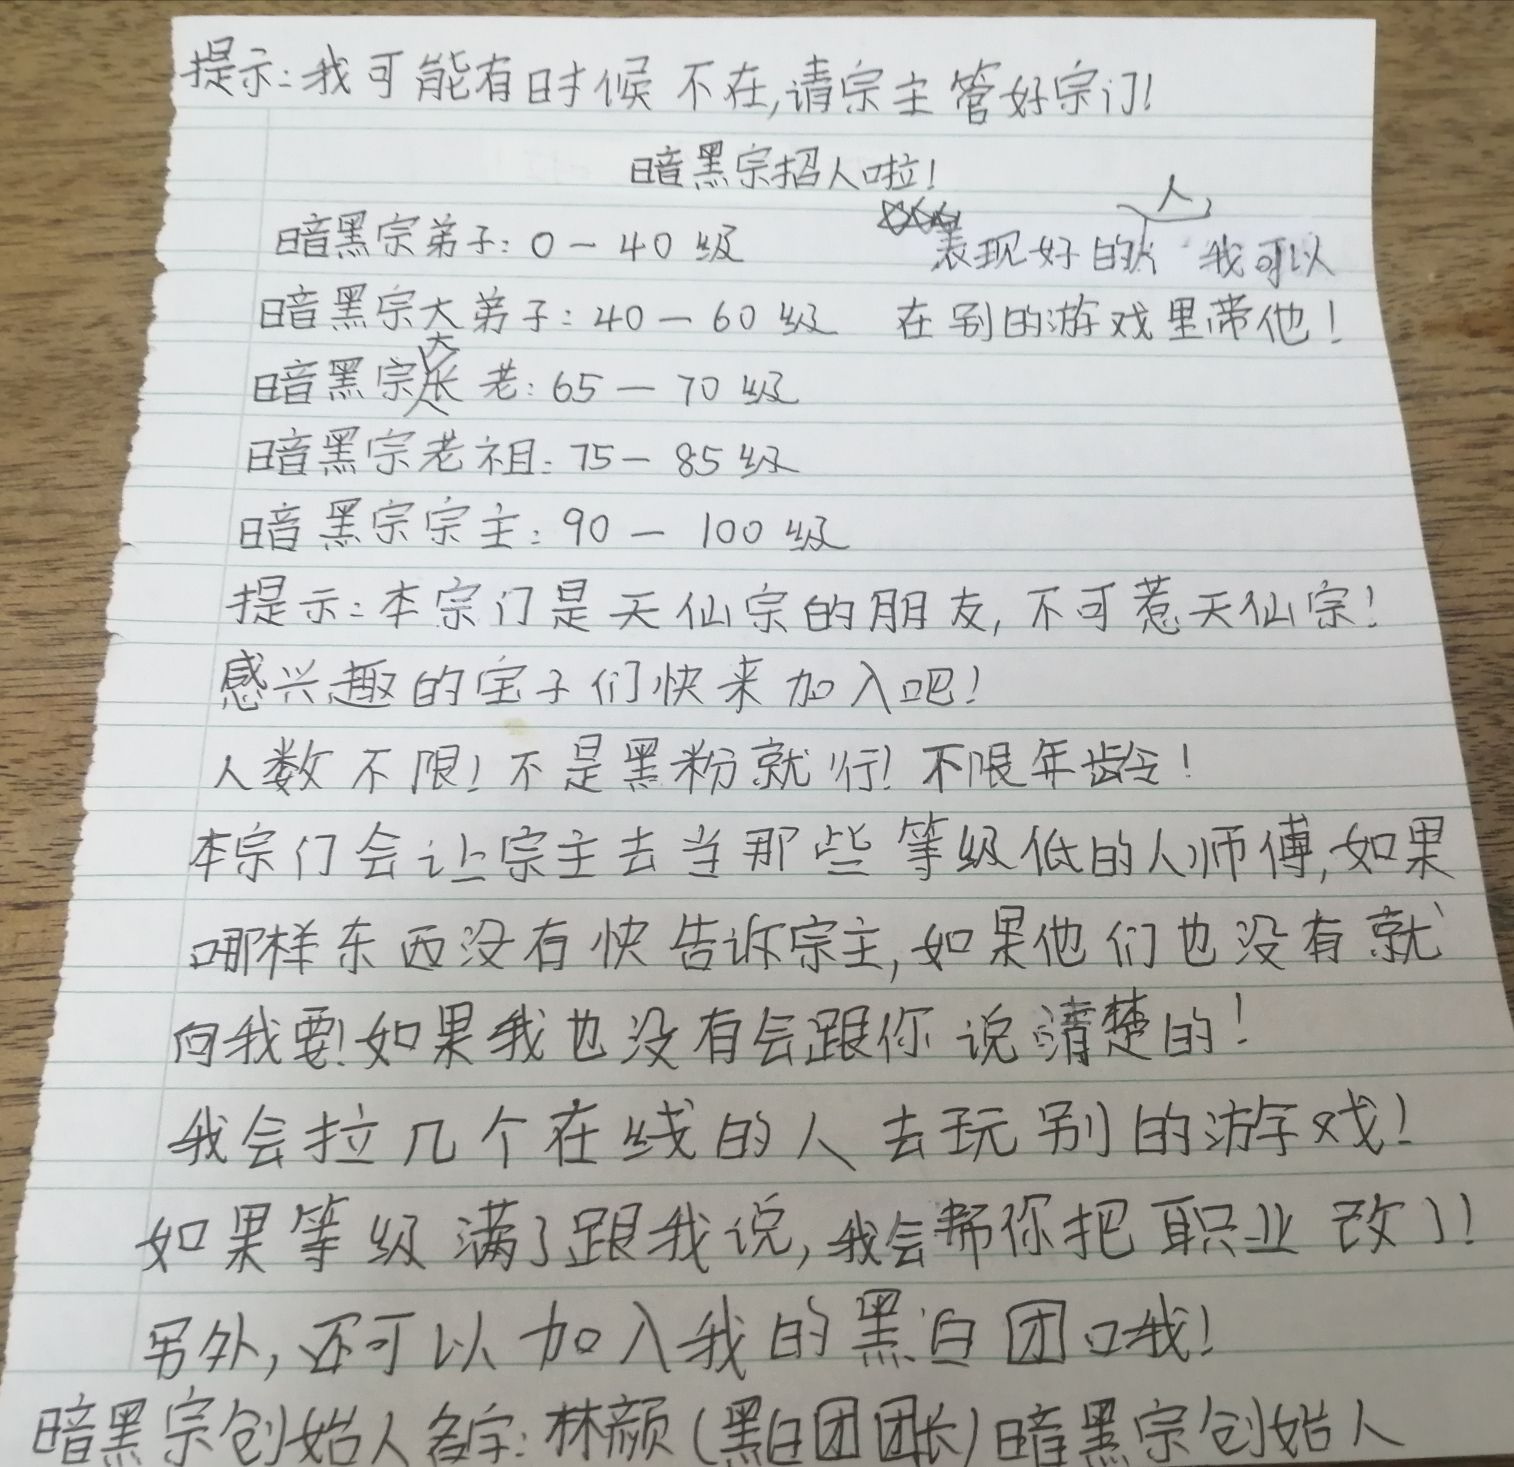 提示:我可能有时候不在,请宗主管好宗门!
暗黑宗招人啦!
暗黑宗弟子:0-40级
表现好的人,我可以
暗黑宗大弟子:40-60级
在别的游戏里带他!
暗黑宗大长老:65-70级
暗黑宗老祖:75-85级
暗黑宗宗主:90-100级
提示:本宗门是天仙宗的朋友,不可惹天仙宗!
感兴趣的宝子们快来加入吧!
人数不限!不是黑粉就行!不限年龄!
本宗门会让宗主去当那些等级低的人师傅,如果
哪样东西没有快告诉宗主,如果他们也没有就
向我要!如果我也没有会跟你说清楚的!
我会拉几个在线的人去玩别的游戏!
如果等级满了跟我说,我会帮你把职业改了!
另外,还可以加入我的黑白团哦!
暗黑宗创始人名字:林颜(黑白团团长)暗黑宗创始人